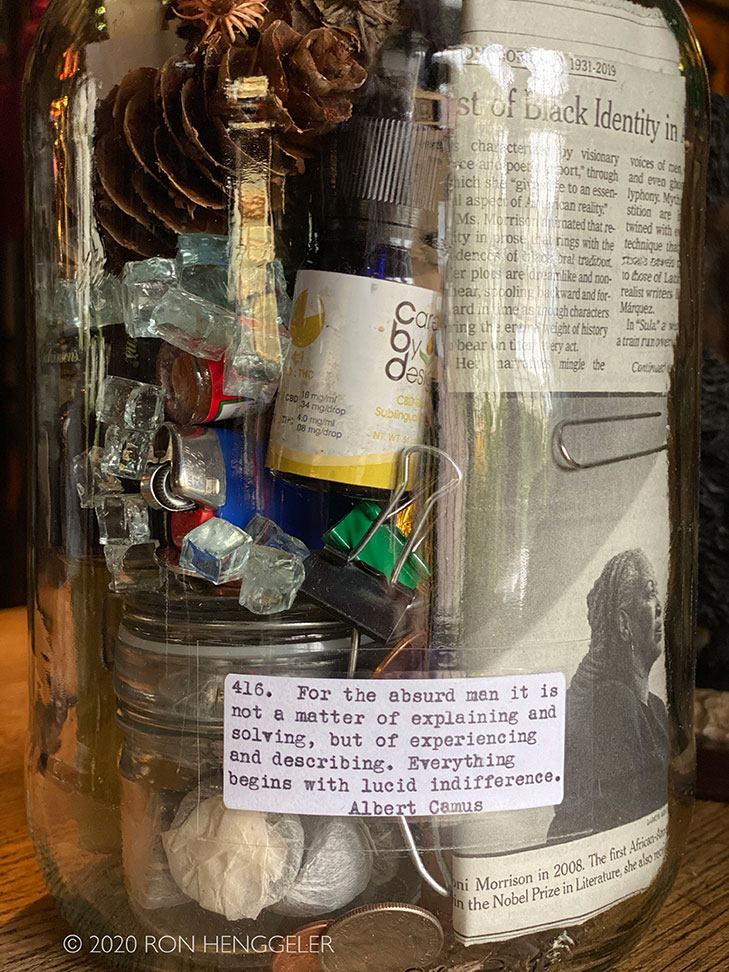 1931-2019
st of Black Identity in
by visionary
port," through
hich she "giv to an essen-
l aspect of Am can reality."
Ms. Morris nated that re-
ity in prose rings with the
dences of oral tradition.
er plots are dreamlike and non-
near, spooling backward and for-
ard in time as though characters
ring the entire weight of history
bear on the ery act.
Her narra mingle the
voices of men,
and even gho
lyphony. Myth
stition are
twined with e
technique tha
to those of Lati
realist writers
Márquez.
In "Sula," a w
a train run over
Continued
Care
by
des
THC
CBD
18 mg/ml
.34 mg/drop
THC
4.0 mg/ml
.08 mg/drop
CBD
Sublingual
NT. WT.
416. For the absurd man it is
not a matter of explaining and
solving, but of experiencing
and describing. Everything
begins with lucid indifference.
Albert Camus
oni Morrison in 2008. The first African-Am
n the Nobel Prize in Literature, she also rece
© 2020 RON HENGGELER